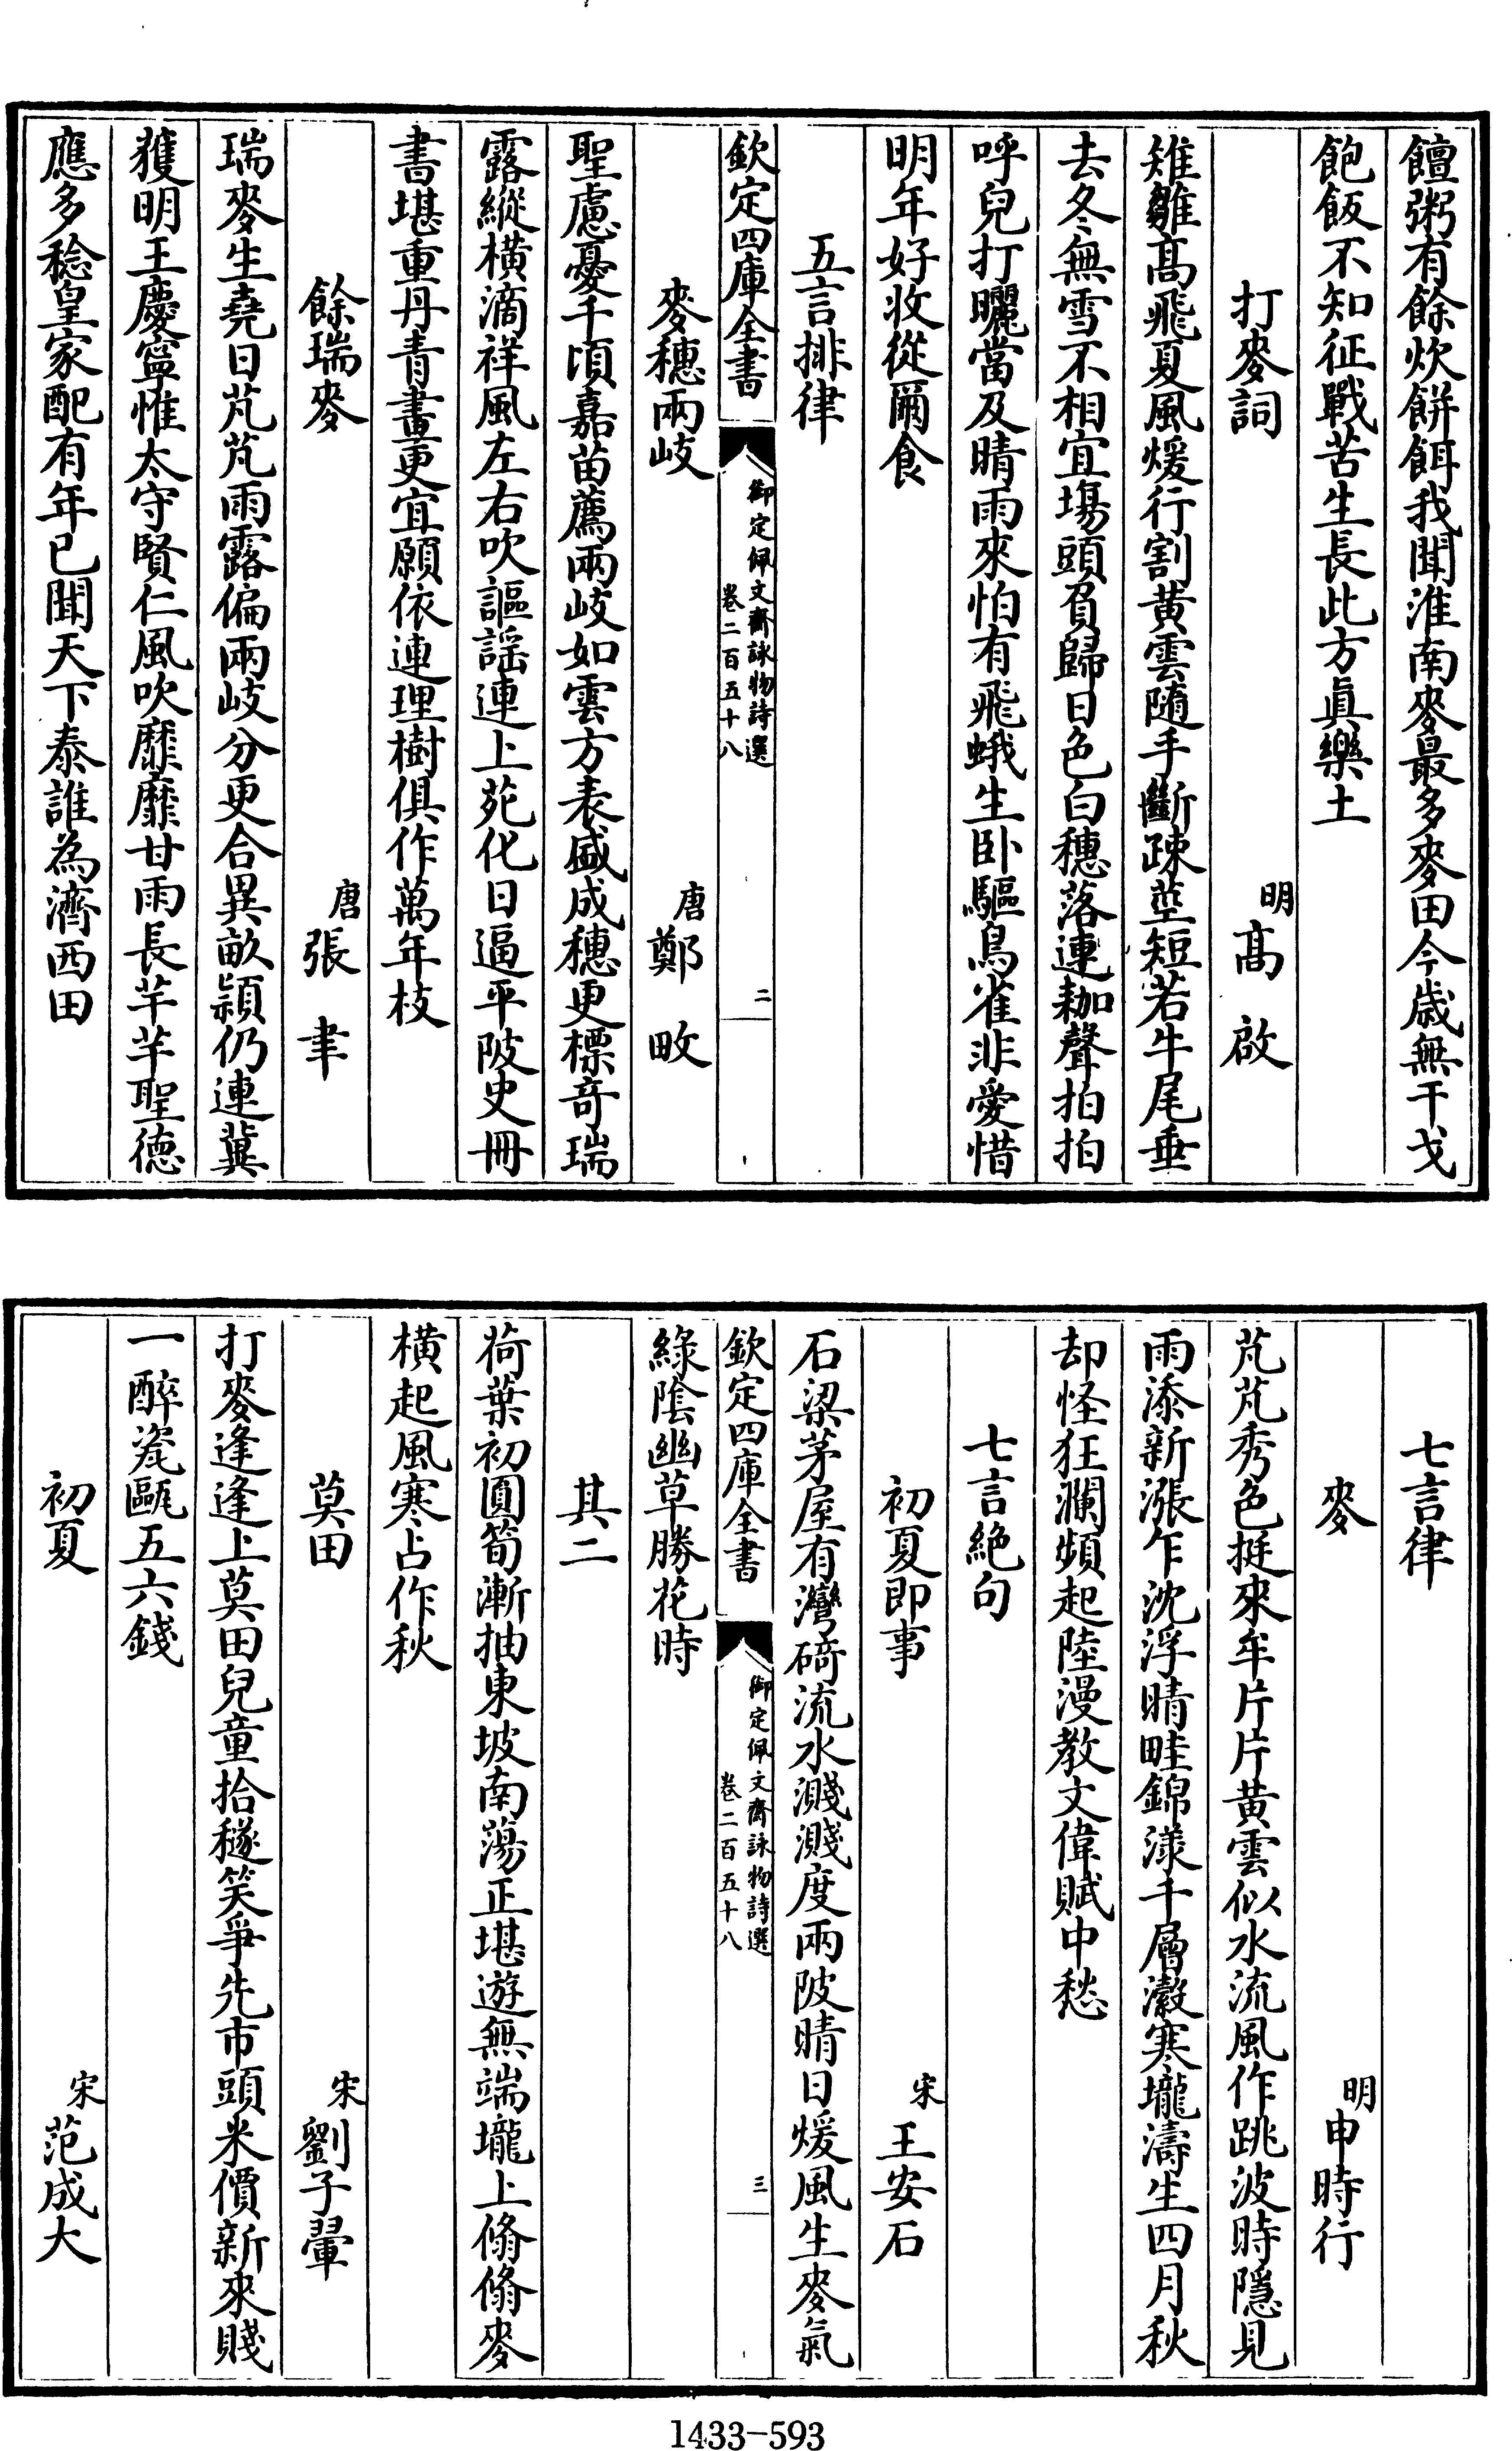 饘粥有餘炊餅餌我聞淮南麥最多麥田今歲無干戈
飽飯不知征戰苦生長此方眞樂土
打麥詞
明髙啟
雉雛髙飛夏風煖行割黃雲隨手斷疎莖短若牛尾垂
去冬無雪不相宜塲頭負歸日色白穗落連耞聲拍拍
呼兒打曬當及晴雨來怕有飛蛾生卧驅鳥雀非愛惜
明年好收從爾食
五言排律
欽定四庫全書
御定佩文齋詠物詩選
卷二百五十八
二
麥穗兩岐
唐鄭畋
聖慮憂千頃嘉苗薦兩岐如雲方表盛成穗更標奇瑞
露縱橫滴祥風左右吹謳謡連上苑化日逼平陂史冊
書堪重丹青畫更宜願依連理樹俱作萬年枝
餘瑞麥
唐張聿
瑞麥生堯日芃芃雨露偏兩岐分更合異畝頴仍連冀
獲明王慶寧惟太守賢仁風吹靡靡甘雨長芊芊聖德
應多稔皇家配有年已聞天下泰誰為濟西田
七言律
麥
明申時行
芃芃秀色挺來牟片片黃雲似水流風作跳波時隱見
雨添新漲乍沈浮晴畦錦漾千層瀫寒壠濤生四月秋
却怪狂瀾頻起陸漫教文偉賦中愁
七言絕句
初夏即事
宋王安石
石梁茅屋有灣碕流水濺濺度兩陂晴日煖風生麥氣
欽定四庫全書
御定佩文齋詠物詩選
卷二百五十八
三
綠陰幽草勝花時
其二
荷葉初圓筍漸抽東坡南蕩正堪遊無端壠上翛翛麥
橫起風寒占作秋
莫田
宋劉子翬
打麥逢逢上莫田兒童拾穟笑爭先市頭米價新來賤
一醉瓷甌五六錢
初夏
宋范成大
1433-593